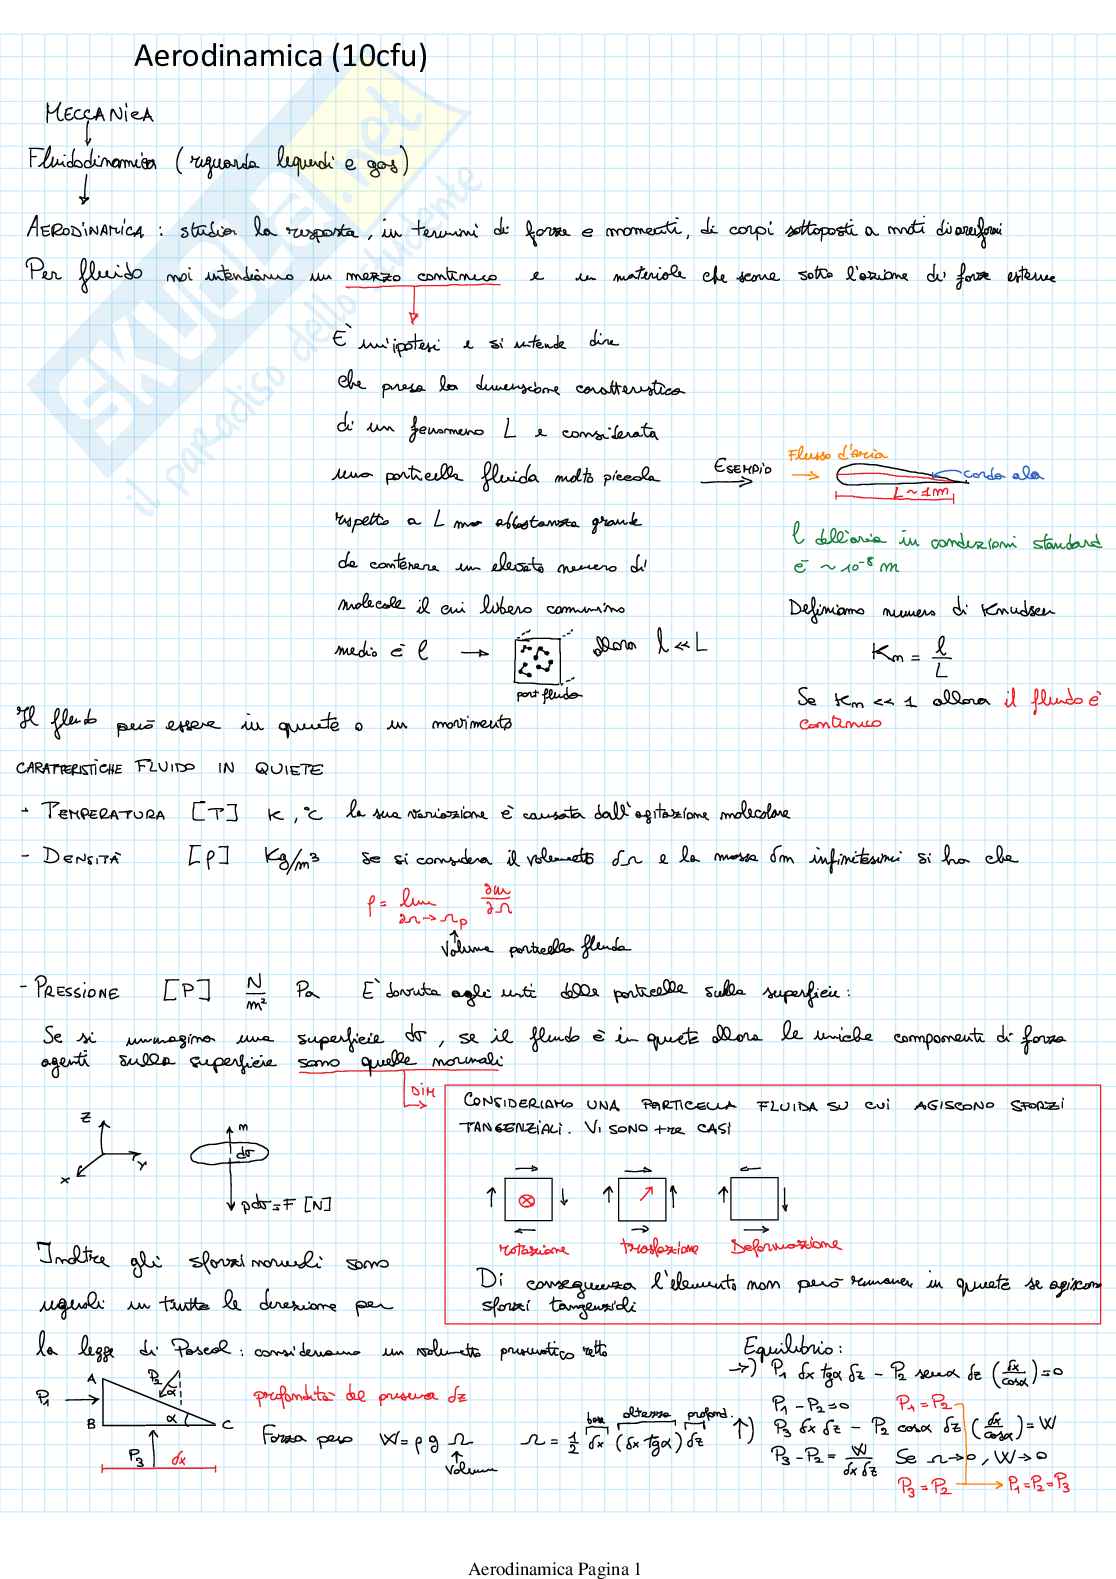 Aerodinamica (10cfu)
MECCANICA
Fluidodinamica (riguarda liquidi e gas)
AERODINAMICA : studia la risposta, in termini di forze e momenti, di corpi sottoposti a moti
Per fluido noi intendiamo un mezzo continuo e un materiale che scorre sotto l'azione di forze esterne
È un'ipotesi e si intende dire
che presa la dimensione caratteristica
di un fenomeno L e considerata
una particella fluida molto piccola
rispetto a L ma abbastanza grande
da contenere un elevato numero di
molecole il cui libero cammino
medio è l → allora l << L
part fluida
ESEMPIO
Flusso d'aria
corda ala
L ~ 1m
l dell'aria in condizioni standard
è ~ 10⁻⁸ m
Definiamo numero di Knudsen
Kn = l/L
Se Kn << 1 allora il fluido è
continuo
Il fluido può essere in quiete o in movimento
CARATTERISTICHE FLUIDO IN QUIETE
- TEMPERATURA [T] K, °C la sua variazione è causata dall'agitazione molecolare
- DENSITÀ [ρ] Kg/m³ se si considera il volumetto δΩ e la massa δm infinitesimi si ha che
ρ = lim ∂Ω→Ωp ∂m/∂Ω
Volume particella fluida
- PRESSIONE [P] N/m² Pa È dovuta agli urti delle particelle sulla superficie :
Se si immagina una superficie dσ, se il fluido è in quiete allora le uniche componenti di forza
agenti sulla superficie sono quelle normali
DIM
CONSIDERIAMO UNA PARTICELLA FLUIDA SU CUI AGISCONO SFORZI
TANGENZIALI. VI SONO tre CASI
rotazione traslazione Deformazione
Di conseguenza l'elemento non può rimanere in quiete se agiscono
sforzi tangenziali
z
x y
n
dσ
pdσ = F [N]
Inoltre gli sforzi normali sono
uguali in tutte le direzione per
la legge di Pascal : consideriamo un volumetto prismatico retto
A
B C
P₁ P₂ P₃
α α
δx
profondità del prisma δz
Forza peso W = ρ g Ω
Volume
Ω = 1/2 δx (δx tgα) δz
base altezza profond.
Equilibrio :
→) P₁ δx tgα δz - P₂ senα δz (δx/cosα) = 0
P₁ - P₂ = 0 P₁ = P₂
↑) P₃ δx δz - P₂ cosα δz (δx/cosα) = W
P₃ - P₂ = W/δx δz Se Ω→0, W→0
P₃ = P₂ → P₁ = P₂ = P₃
Aerodinamica Pagina 1
SKUOLA.net
il paradiso dello studente